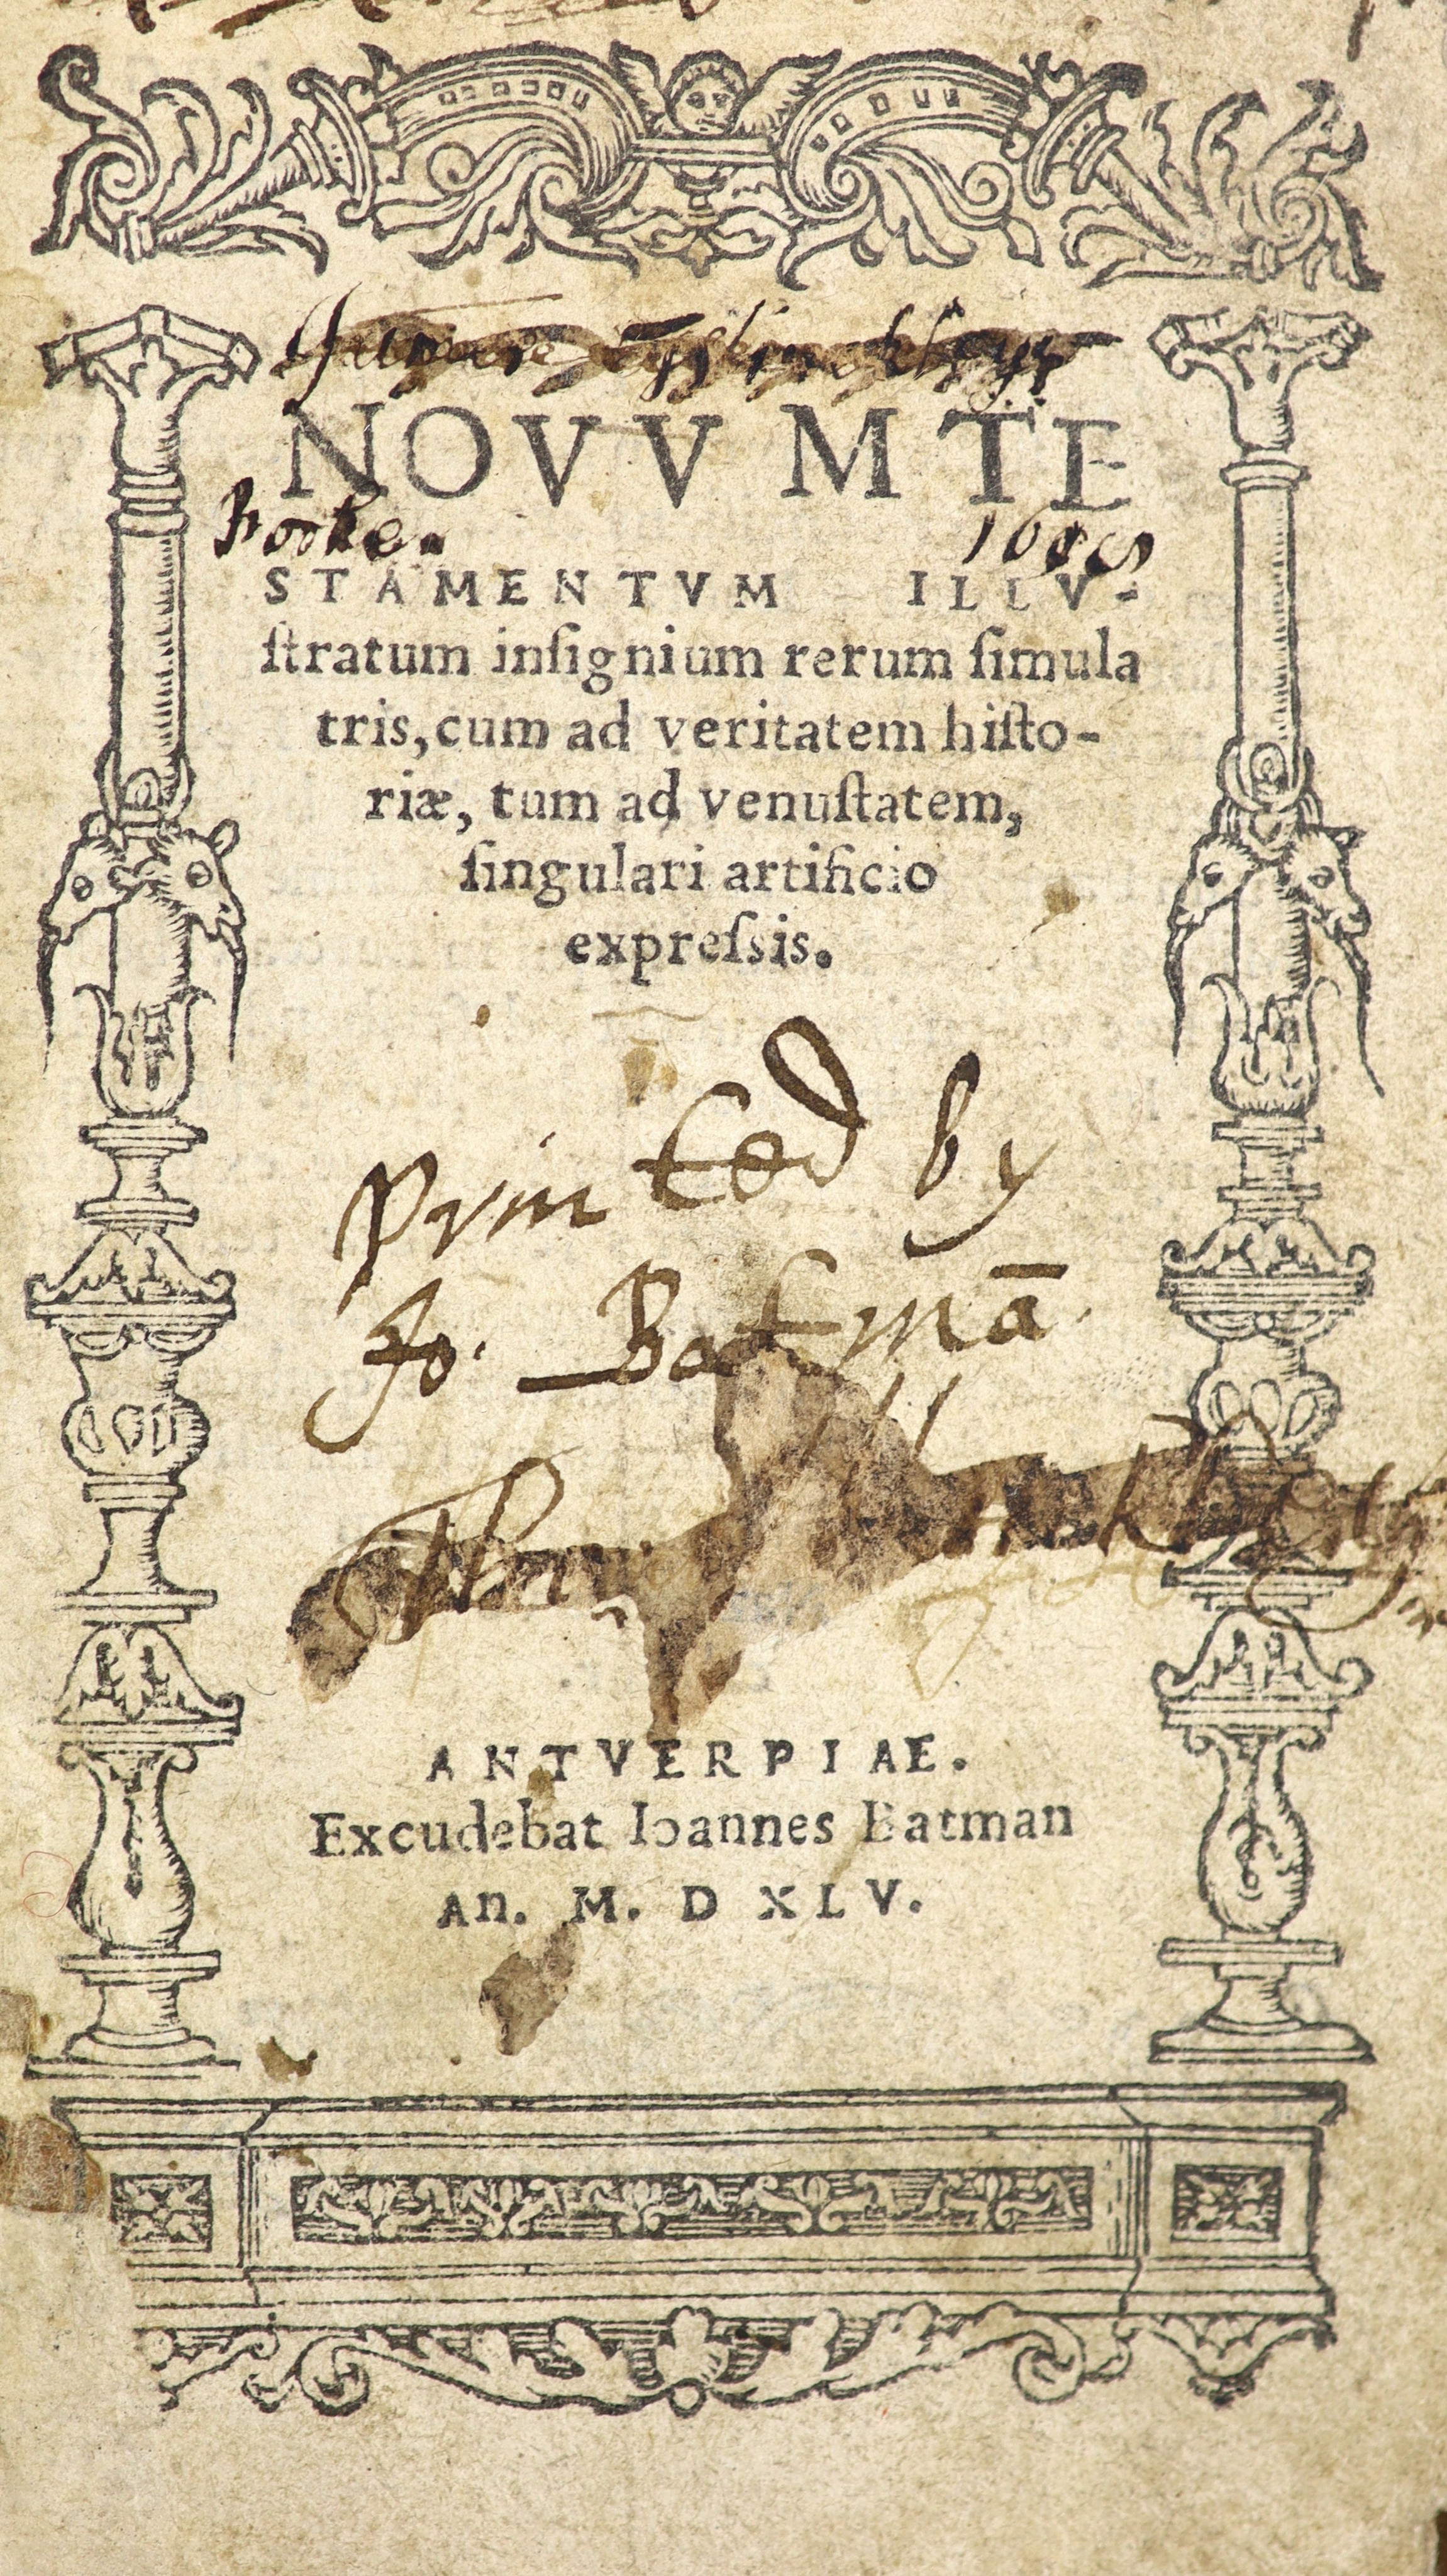 NOVVM TE
Booke. 
STAMENTVM ILLV-
ſtratum inſignium rerum ſimula
tris, cum ad veritatem hiſto-
riæ, tum ad venuſtatem,
ſingulari artificio
expreſsis.
Printed by
Jo. Batmā.
ANTVERPIAE.
Excudebat Ioannes Batman
An. M. D XLV.